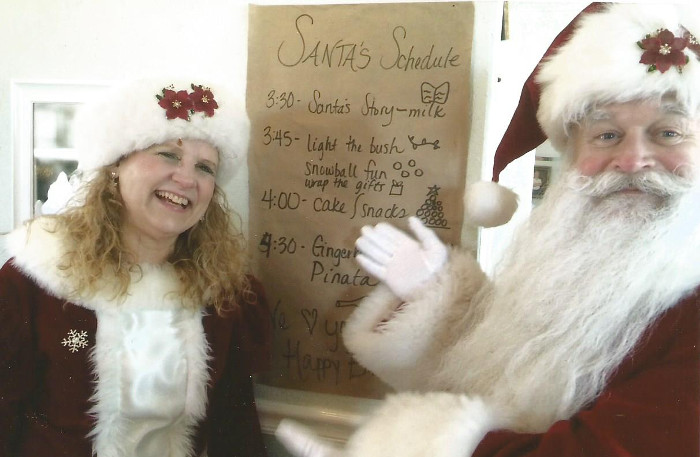 SANTA'S Schedule
3:30 - Santa's Story - milk
3:45 - light the bush
snowball fun
wrap the gifts
4:00 - cake / snacks
4:30 - Ginger
Pinata
We ♡ yo
Happy